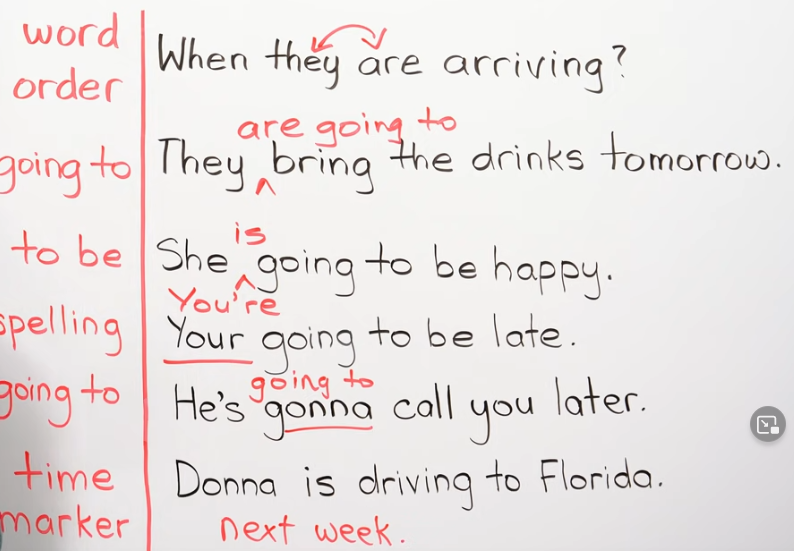 word
order
When they are arriving?
are going to
going to
They ^ bring the drinks tomorrow.
is
to be
She ^ going to be happy.
You're
spelling
Your going to be late.
going to
going to
He's gonna call you later.
time
marker
Donna is driving to Florida.
next week.